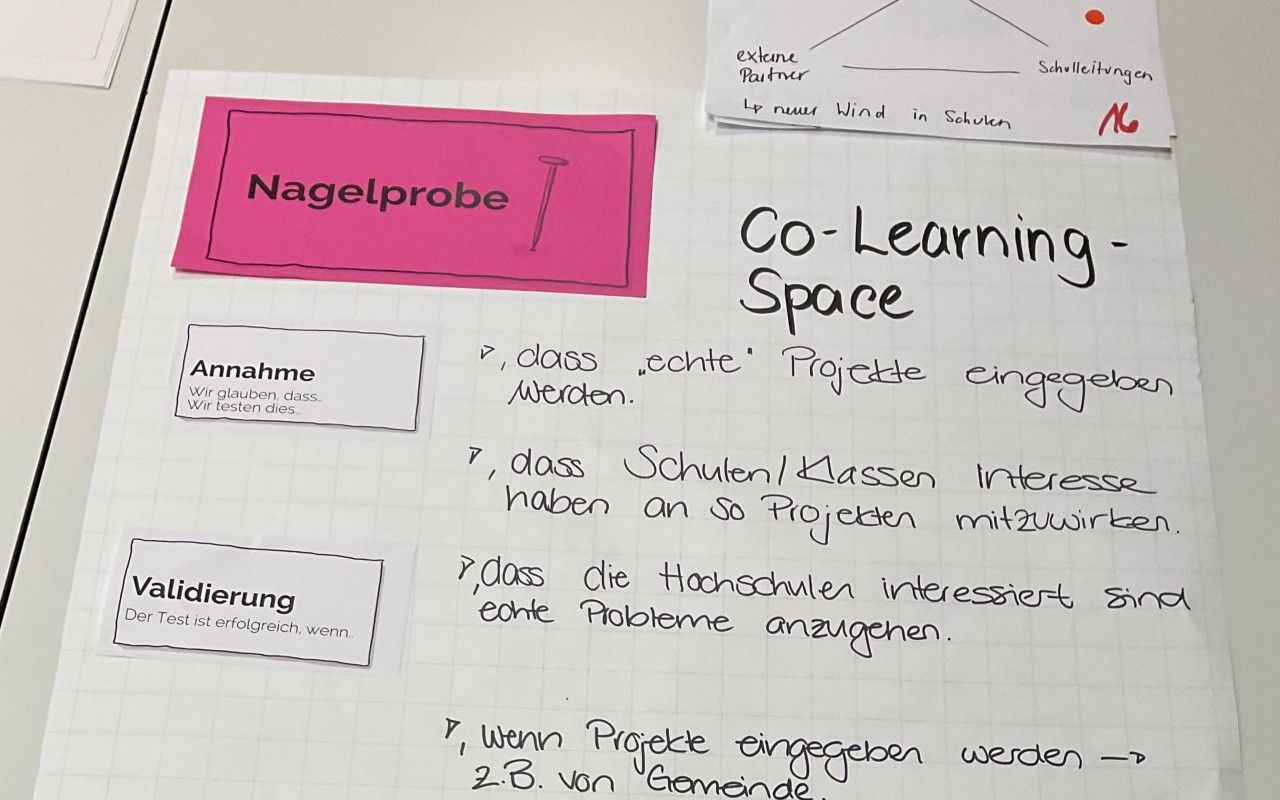 externe
Partner
Schulleitungen
↳ neuer Wind in Schulen
16
Nagelprobe
Co-Learning-
Space
Annahme
Wir glauben, dass...
Wir testen dies...
▷, dass „echte" Projekte eingegeben
werden.
▷, dass Schulen/Klassen Interesse
haben an so Projekten mitzuwirken.
Validierung
Der Test ist erfolgreich, wenn...
▷, dass die Hochschulen interessiert sind
echte Probleme anzugehen.
▷, wenn Projekte eingegeben werden →
z.B. von Gemeinde.